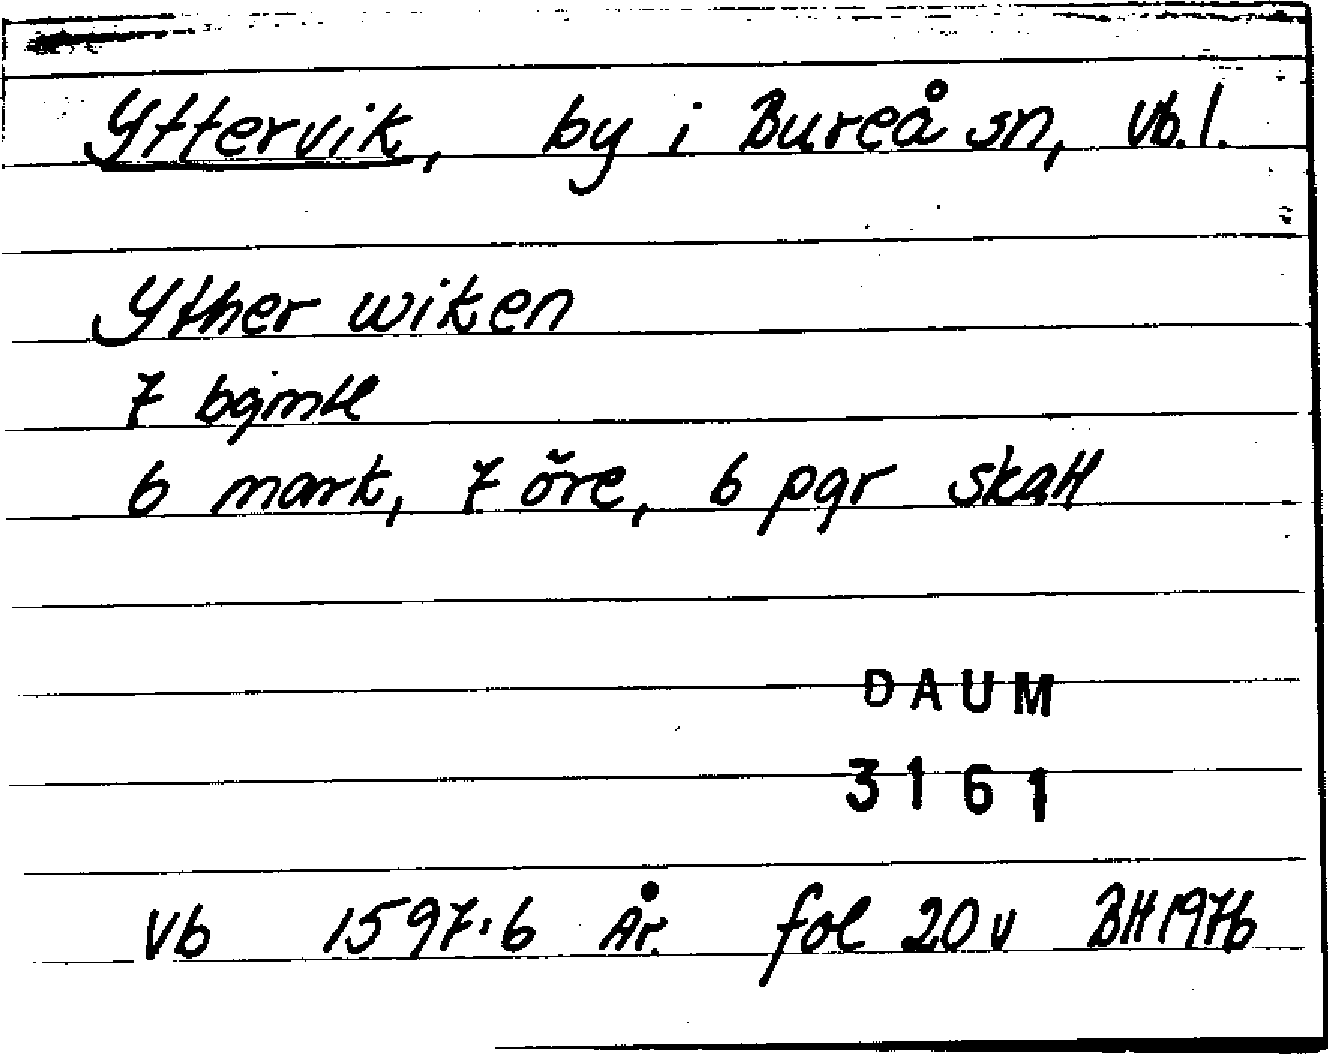 Yttervik, by i Bureå sn, Vb.l.
Yther wiken
7 bqmtl
6 mark, 7 öre, 6 pgr skatt
DAUM
3161
Vb 1597:6 År. fol 20v BH1976